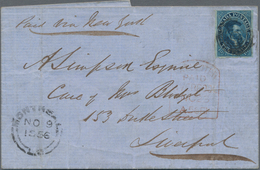 Paid via New York
A Simpson Esquire
Care of Mrs Blodget
153 Duke Street
Liverpool
MONTREAL
NO 9
1856
L.C